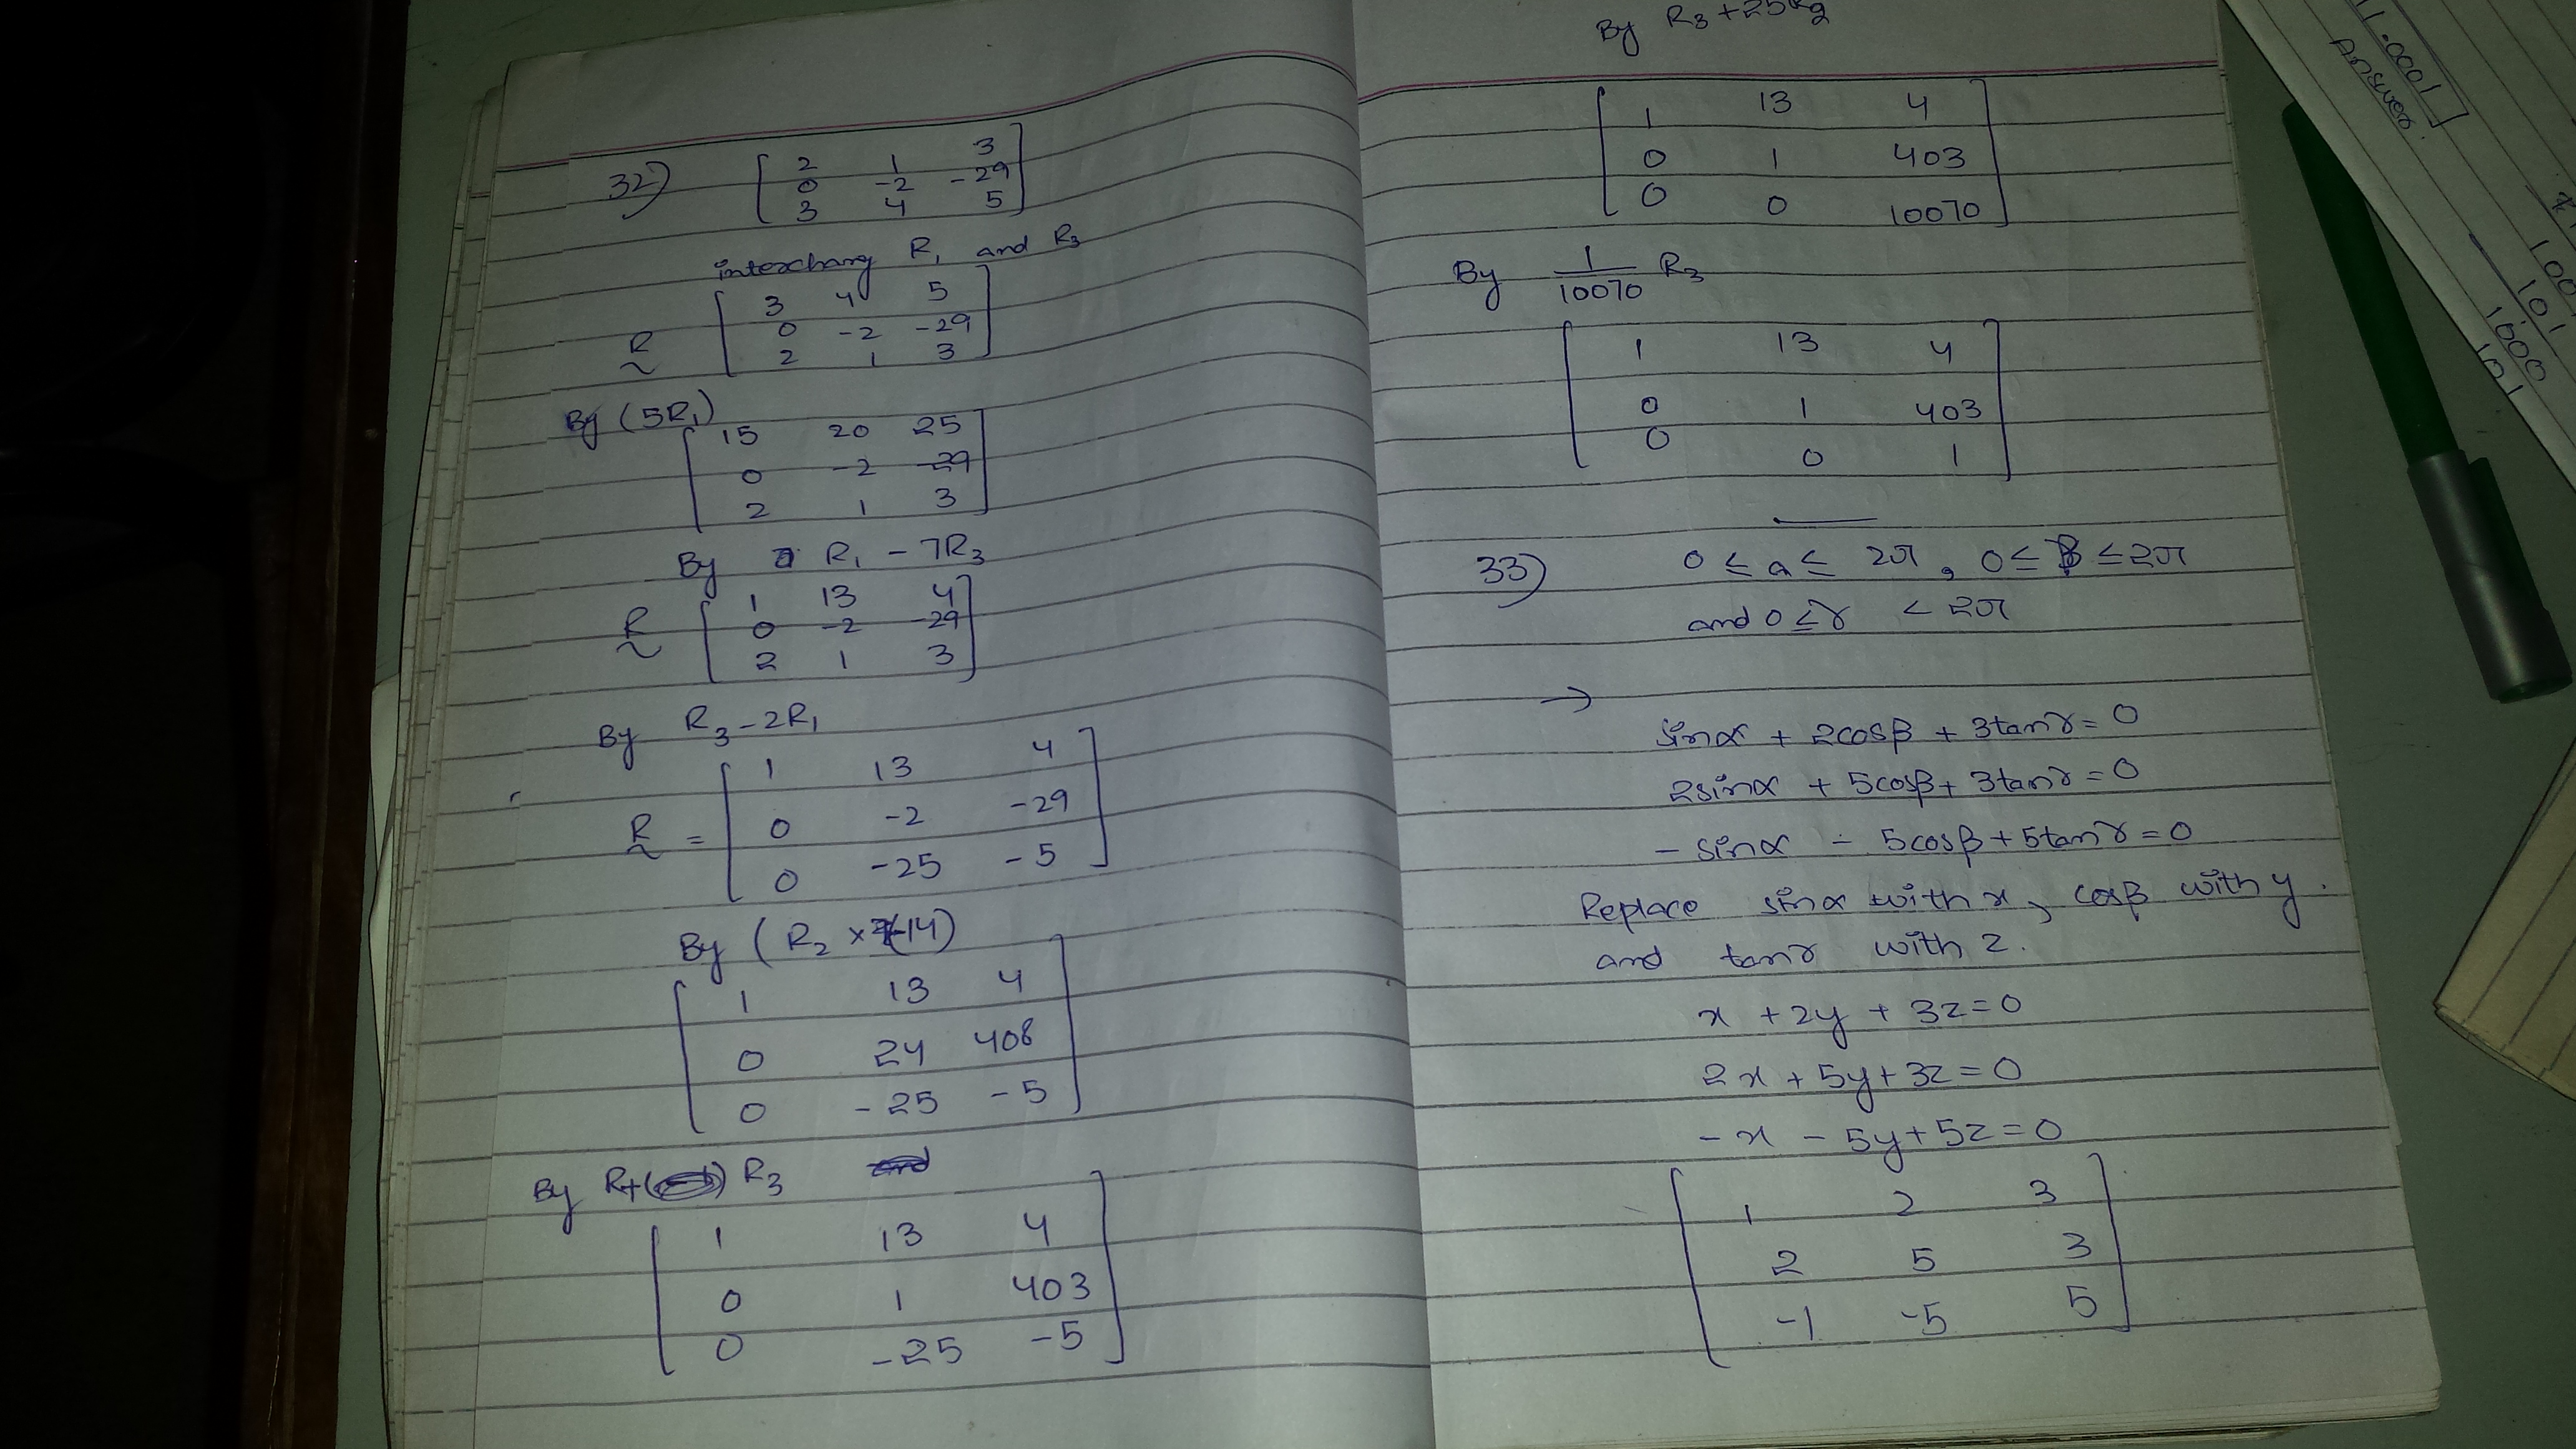 32)
2 1 3
0 -2 -29
3 4 5
interchang R1 and R3
3 4 5
R ~ 0 -2 -29
2 1 3
By (5R1)
15 20 25
0 -2 -29
2 1 3
By R1 - 7R3
1 13 4
R ~ 0 -2 -29
2 1 3
By R3 - 2R1
1 13 4
R ~ = 0 -2 -29
0 -25 -5
By (R2 × (-14)
1 13 4
0 24 408
0 -25 -5
By R+ R3
1 13 4
0 1 403
0 -25 -5
By R3 + 25R2
1 13 4
0 1 403
0 0 10070
By 1/10070 R3
1 13 4
0 1 403
0 0 1
33) 0 ≤ a ≤ 2π, 0 ≤ β ≤ 2π
and 0 ≤ γ < 2π
→
sinα + 2cosβ + 3tanγ = 0
2sinα + 5cosβ + 3tanγ = 0
- sinα - 5cosβ + 5tanγ = 0
Replace sinα with x, cosβ with y.
and tanγ with z.
x + 2y + 3z = 0
2x + 5y + 3z = 0
-x - 5y + 5z = 0
1 2 3
2 5 3
-1 -5 5
11.0001
Answer.
100
101
1000
101